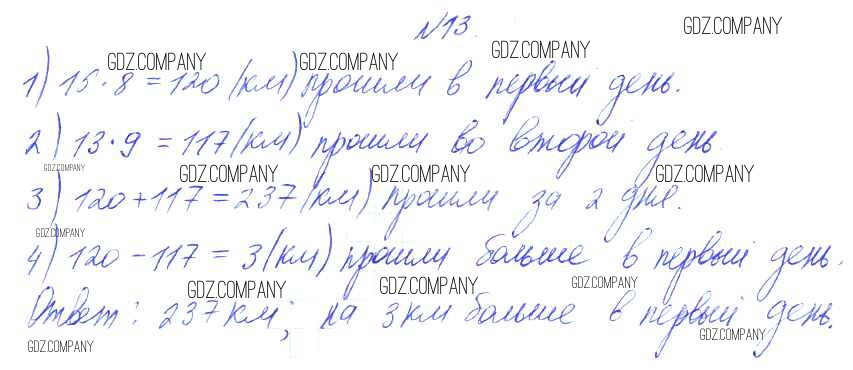 №13.
GDZ.COMPANY
GDZ.COMPANY GDZ.COMPANY GDZ.COMPANY
1) 15·8=120 (км) прошли в первый день.
2) 13·9=117 (км) прошли во второй день.
GDZ.COMPANY GDZ.COMPANY GDZ.COMPANY GDZ.COMPANY
3) 120+117=237 (км) прошли за 2 дня.
GDZ.COMPANY
4) 120-117=3 (км) прошли больше в первый день.
GDZ.COMPANY GDZ.COMPANY GDZ.COMPANY
Ответ: 237 км; на 3 км больше в первый день.
GDZ.COMPANY GDZ.COMPANY